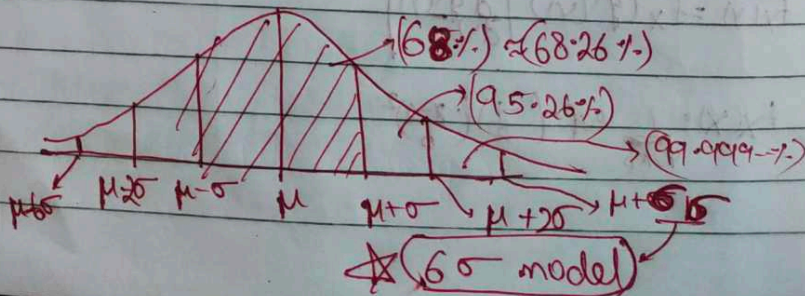 (68%) ≈(68.26%)
(95.26%)
(99.999--%)
μ-6σ μ-2σ μ-σ μ μ+σ μ+2σ μ+6σ
☆ (6σ model)